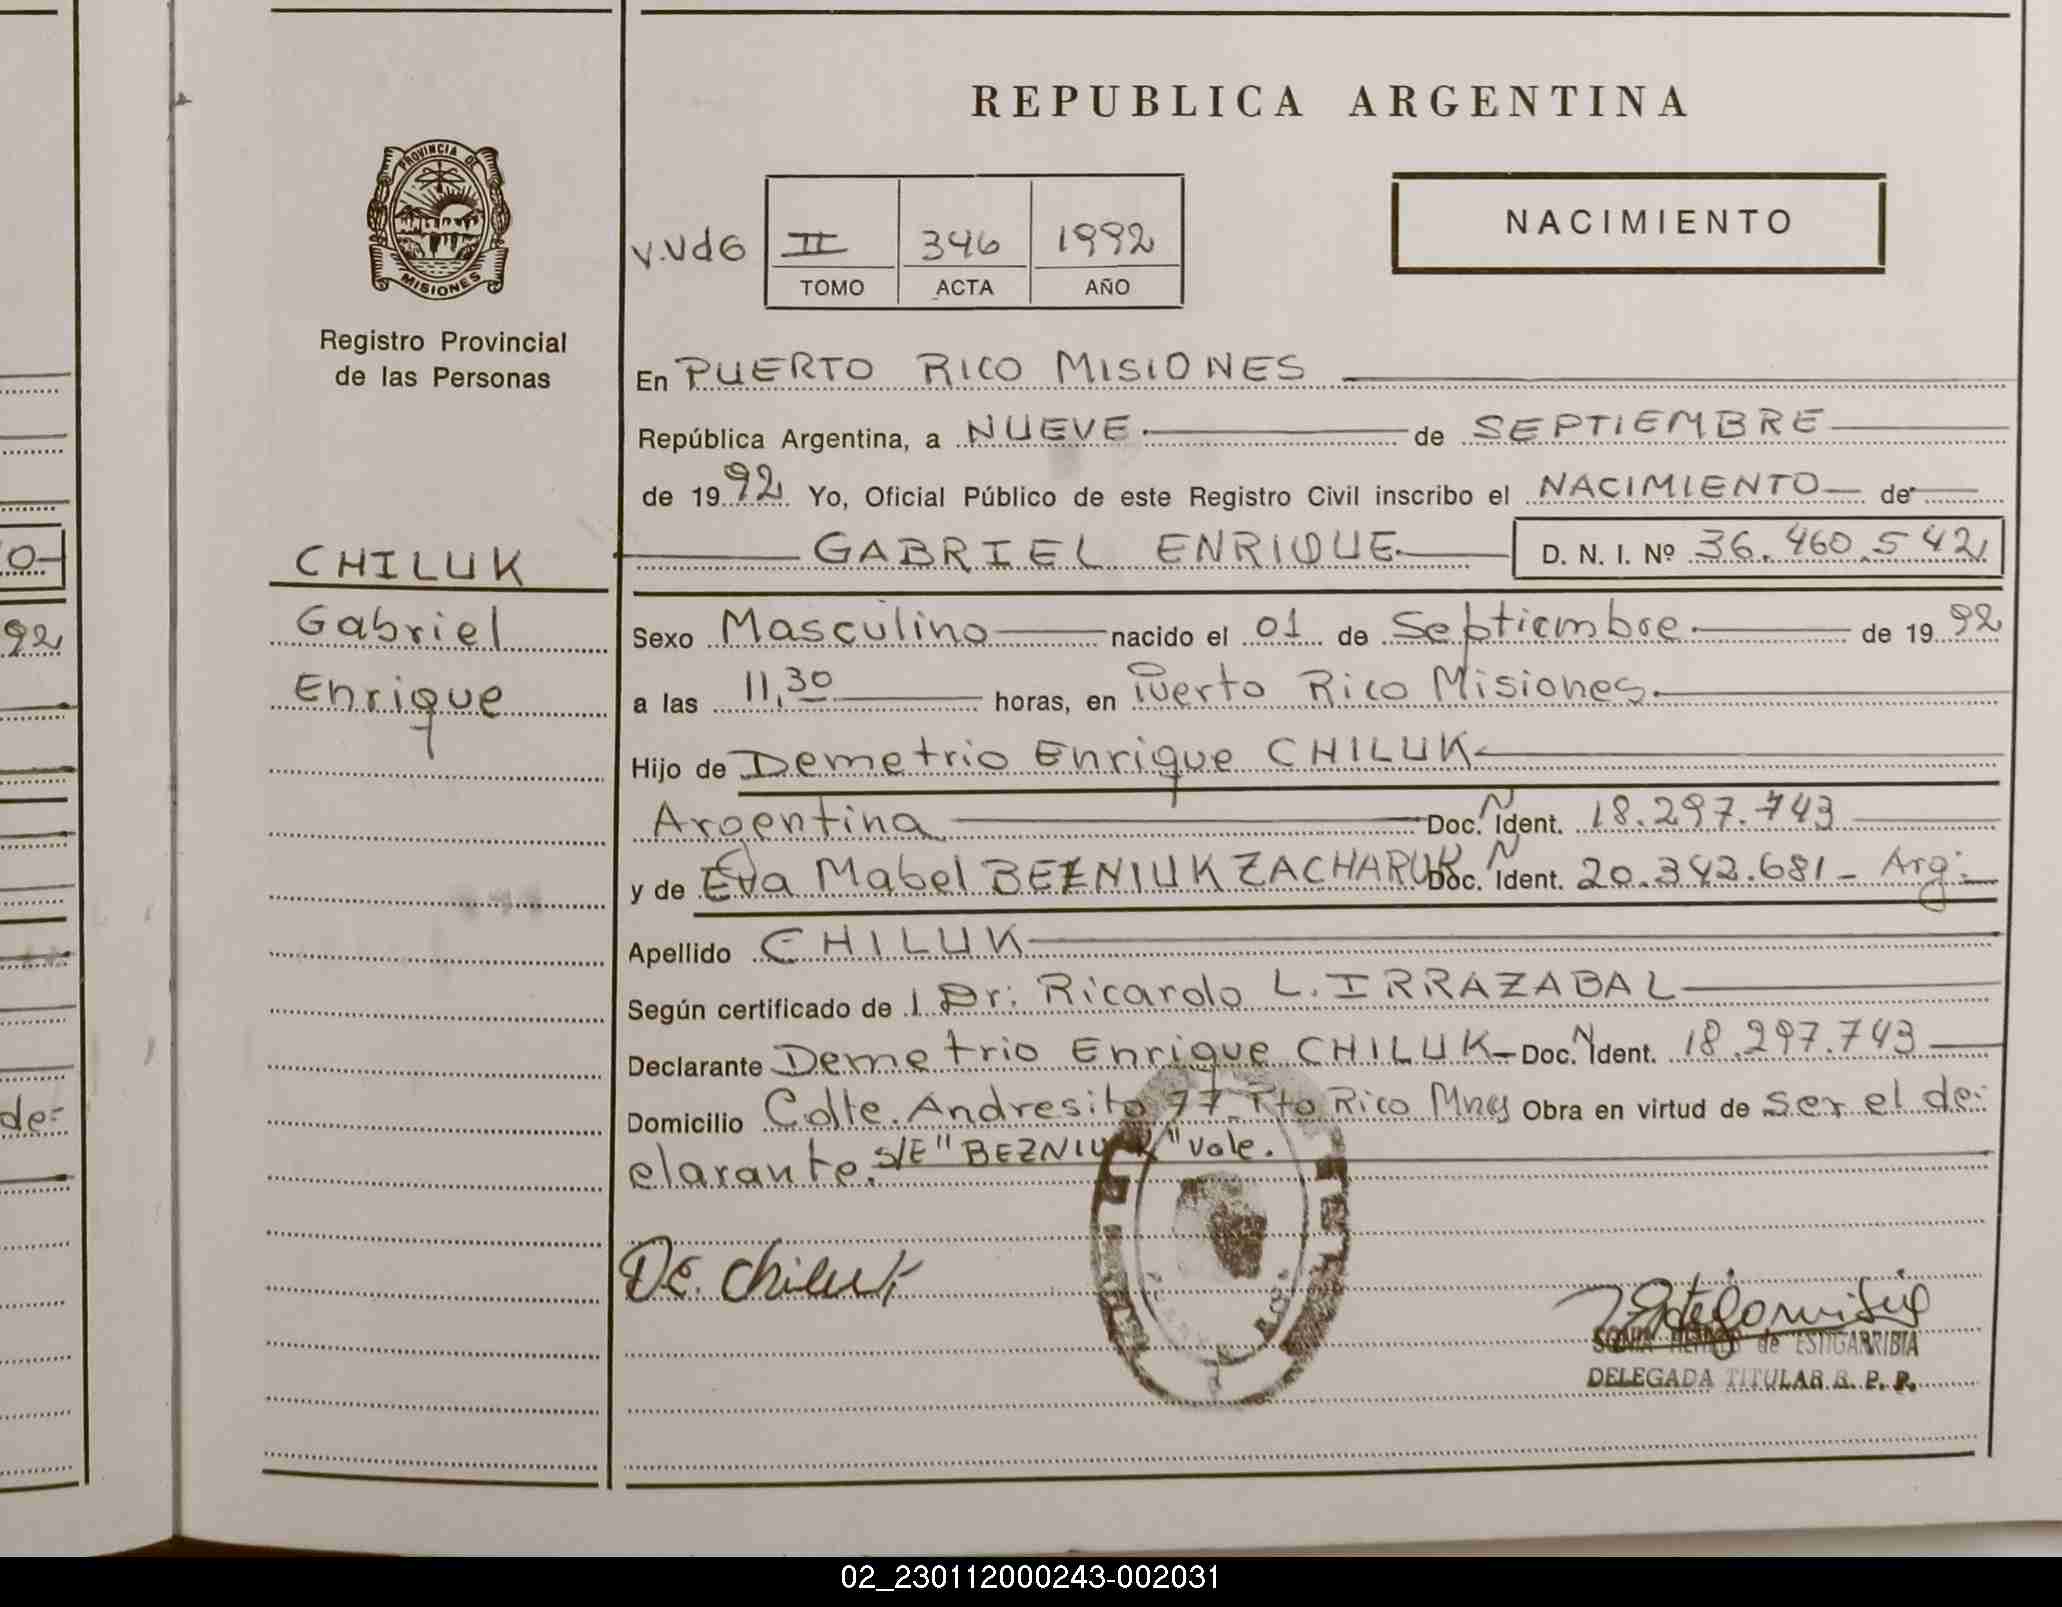 REPUBLICA ARGENTINA
PROVINCIA DE
MISIONES
Registro Provincial
de las Personas
NACIMIENTO
V.VdG II 346 1992
TOMO ACTA AÑO
En PUERTO RICO MISIONES
República Argentina, a NUEVE de SEPTIEMBRE
de 1992 Yo, Oficial Público de este Registro Civil inscribo el NACIMIENTO de
GABRIEL ENRIQUE D. N. I. Nº 36.460.542
CHILUK
Gabriel
Enrique
Sexo Masculino nacido el 01 de Septiembre de 1992
a las 11,30 horas, en Puerto Rico Misiones.
Hijo de Demetrio Enrique CHILUK
Argentina Doc. N Ident. 18.297.743
y de Eva Mabel BEZNIUK ZACHARUK Doc. N Ident. 20.342.681 - Arg:
Apellido CHILUK
Según certificado de l Dr: Ricardo L. IRRAZABAL
Declarante Demetrio Enrique CHILUK - Doc. N Ident. 18.297.743
Domicilio Calle. Andresito 77 Pto Rico Mnes Obra en virtud de ser el de-
clarante. s/E "BEZNIUK" Vale.
D.E. Chiluk
SONIA de ESTIGARRIBIA
DELEGADA TITULAR R. P. P.
92
de-
02_230112000243-002031